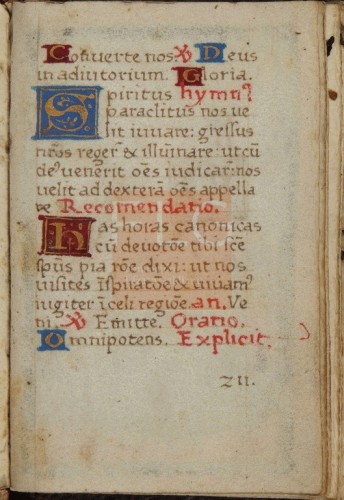 Converte nos. ℣ Deus
in adiutorium. Gloria.
Spiritus hymnꝰ
paraclitus nos ve
lit iuuare: gressus
nr̄os reger̄ & illuīnare: ut cū
deꝰ venerit oēs iudicar̄: nos
uelit ad dexterā oēs appella
re Recomendatio.
Has horas canonicas
cū deuotōe tibi scē
spūs pia rōe dixi: ut nos
uisites īspiratōe & uiuamꝰ
iugiter ī celi regiōe. an. Ve
ni. ℣ Emitte. Oratio.
Omnipotens. Explicit.
211.